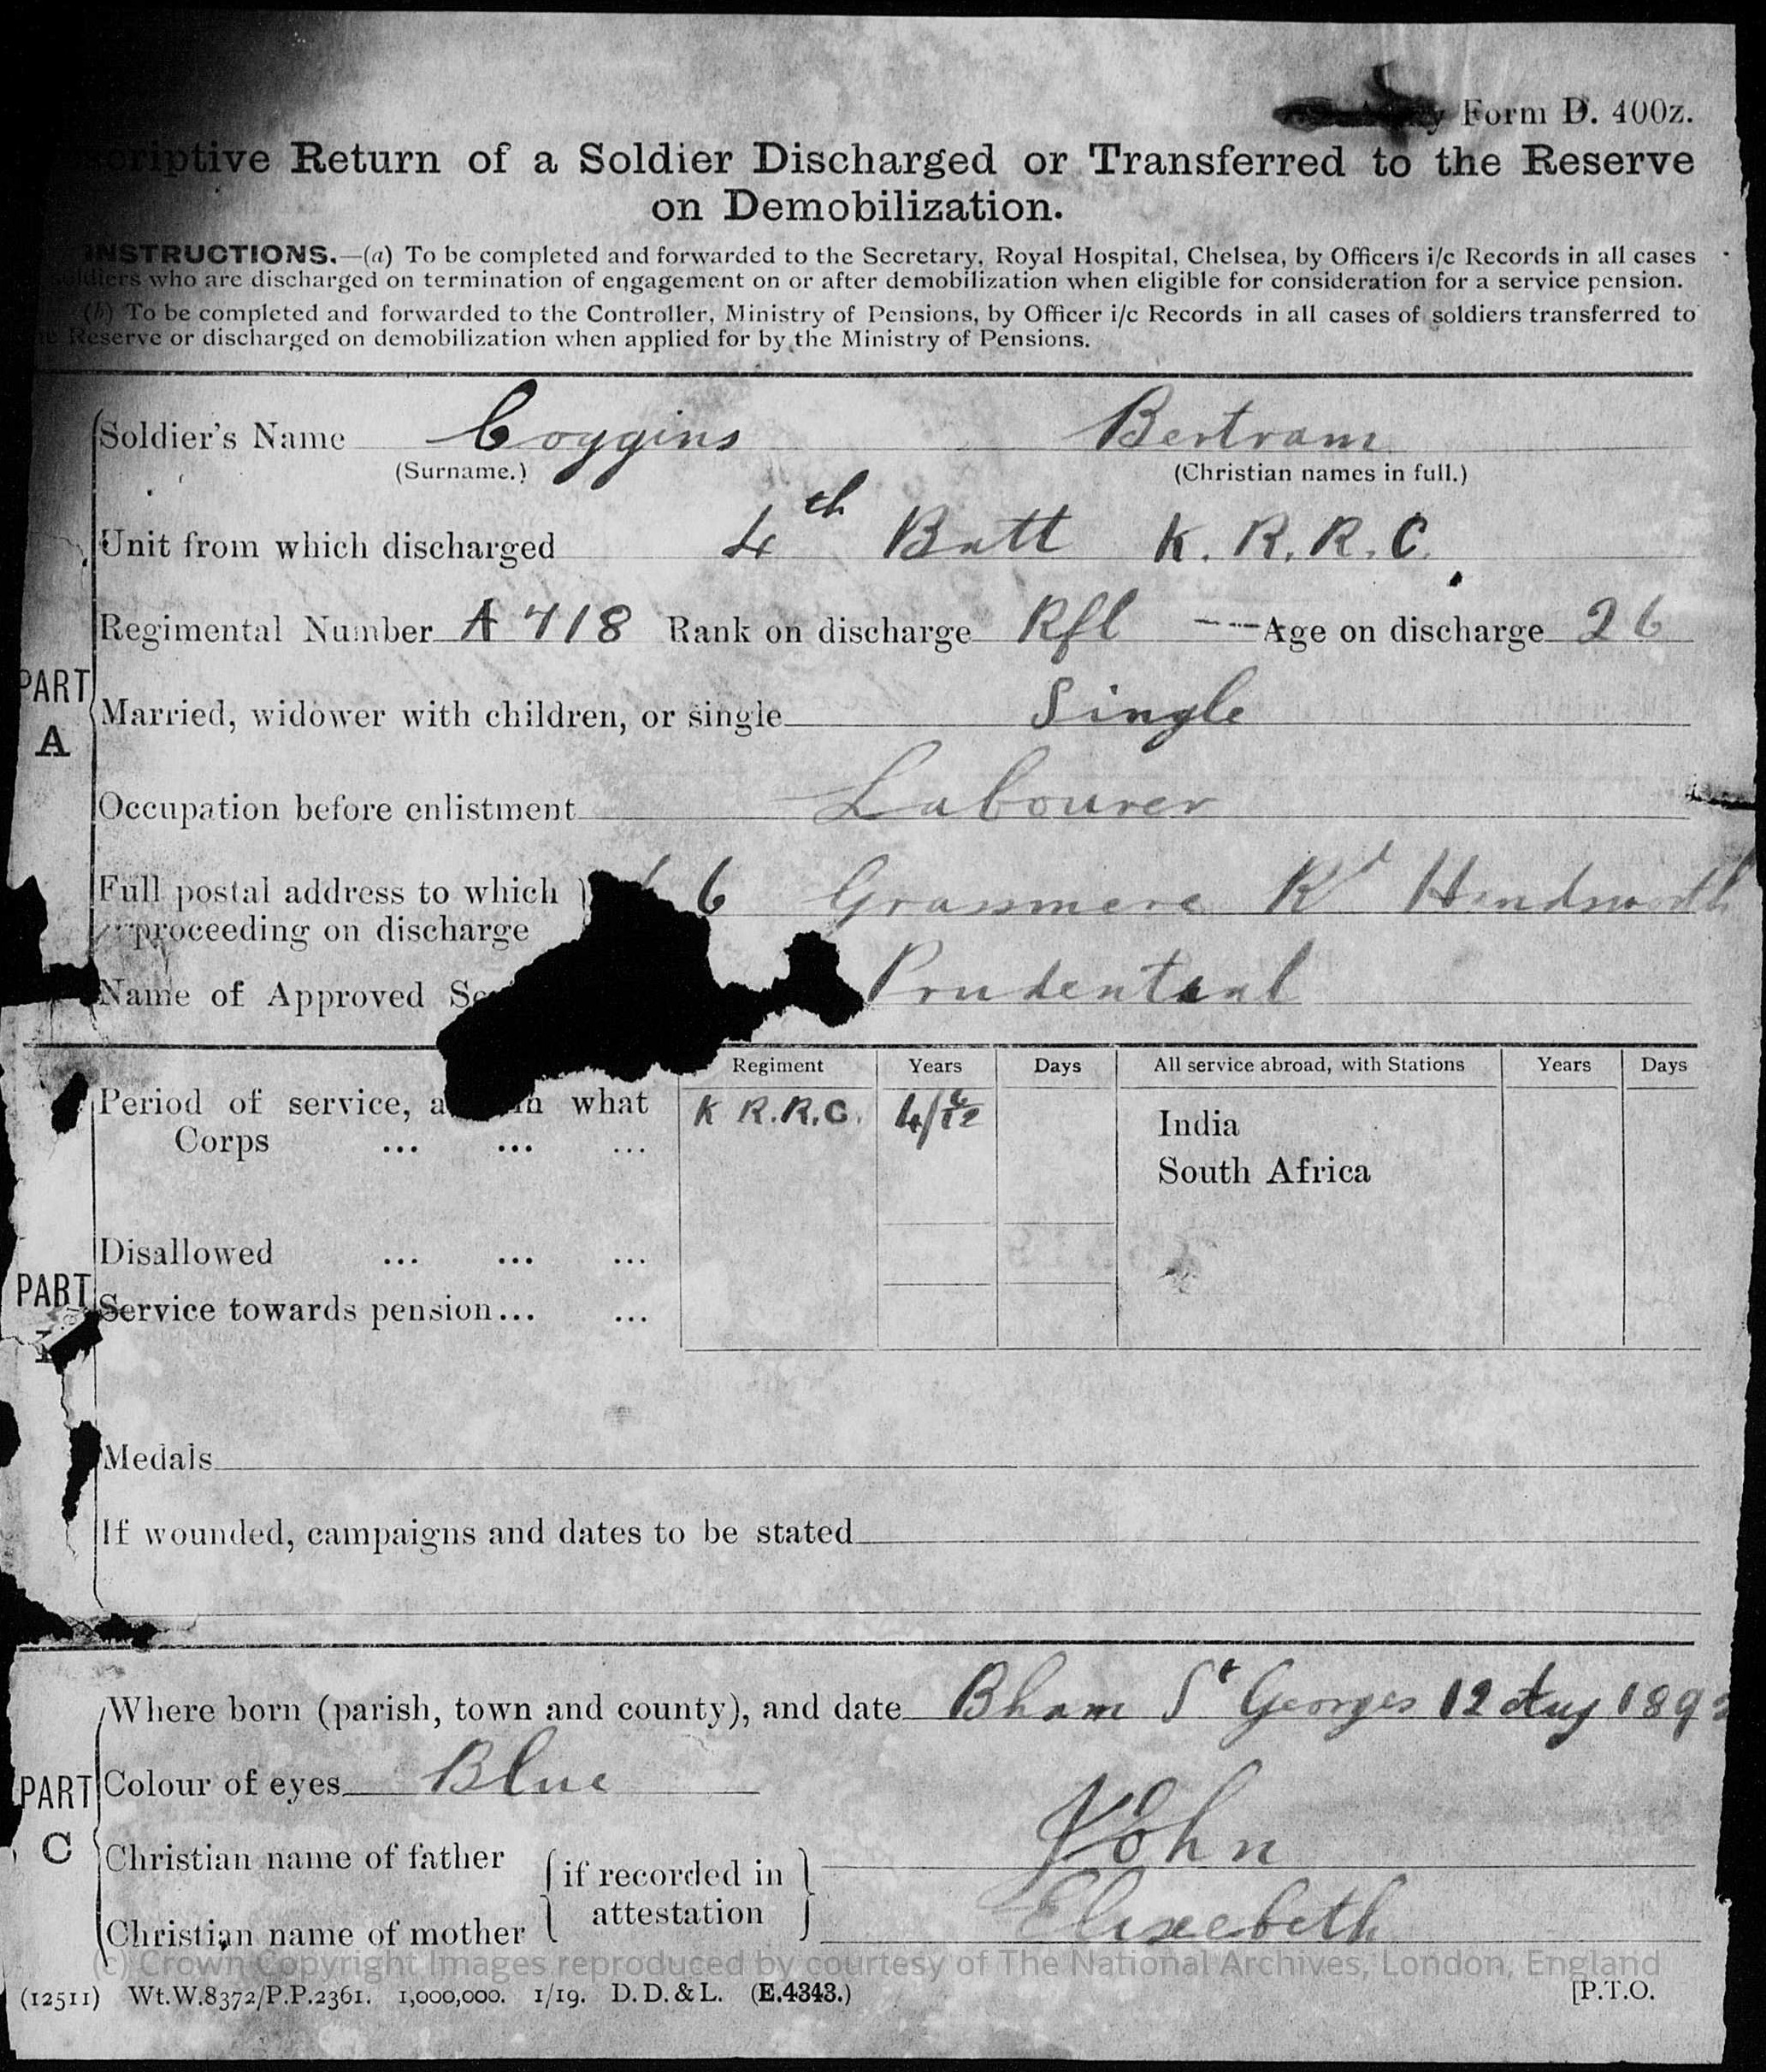 Form D. 400z.
Return of a Soldier Discharged or Transferred to the Reserve
on Demobilization.
INSTRUCTIONS.—(a) To be completed and forwarded to the Secretary, Royal Hospital, Chelsea, by Officers i/c Records in all cases
who are discharged on termination of engagement on or after demobilization when eligible for consideration for a service pension.
(b) To be completed and forwarded to the Controller, Ministry of Pensions, by Officer i/c Records in all cases of soldiers transferred to
Reserve or discharged on demobilization when applied for by the Ministry of Pensions.
Soldier's Name Coggins Bertram
(Surname.) (Christian names in full.)
Unit from which discharged 4th Batt K. R. R. C.
Regimental Number A 718 Rank on discharge Rfl --- Age on discharge 26
PART
A
Married, widower with children, or single Single
Occupation before enlistment Labourer
Full postal address to which } 6 Grasmere Rd Handsworth
proceeding on discharge
Name of Approved Prudential
Regiment Years Days All service abroad, with Stations Years Days
Period of service, in what K R.R.C. 4/ India
Corps ... ... ...
South Africa
Disallowed ... ... ...
PART
Service towards pension... ...
Medals
If wounded, campaigns and dates to be stated
Where born (parish, town and county), and date Bham St Georges 12 Aug 189
PART
C
Colour of eyes Blue
Christian name of father { if recorded in } John
Christian name of mother { attestation } Elizebeth
(c) Crown Copyright Images reproduced by courtesy of The National Archives, London, England
(12511) Wt.W.8372/P.P.2361. 1,000,000. 1/19. D. D. & L. (E.4343.) [P.T.O.